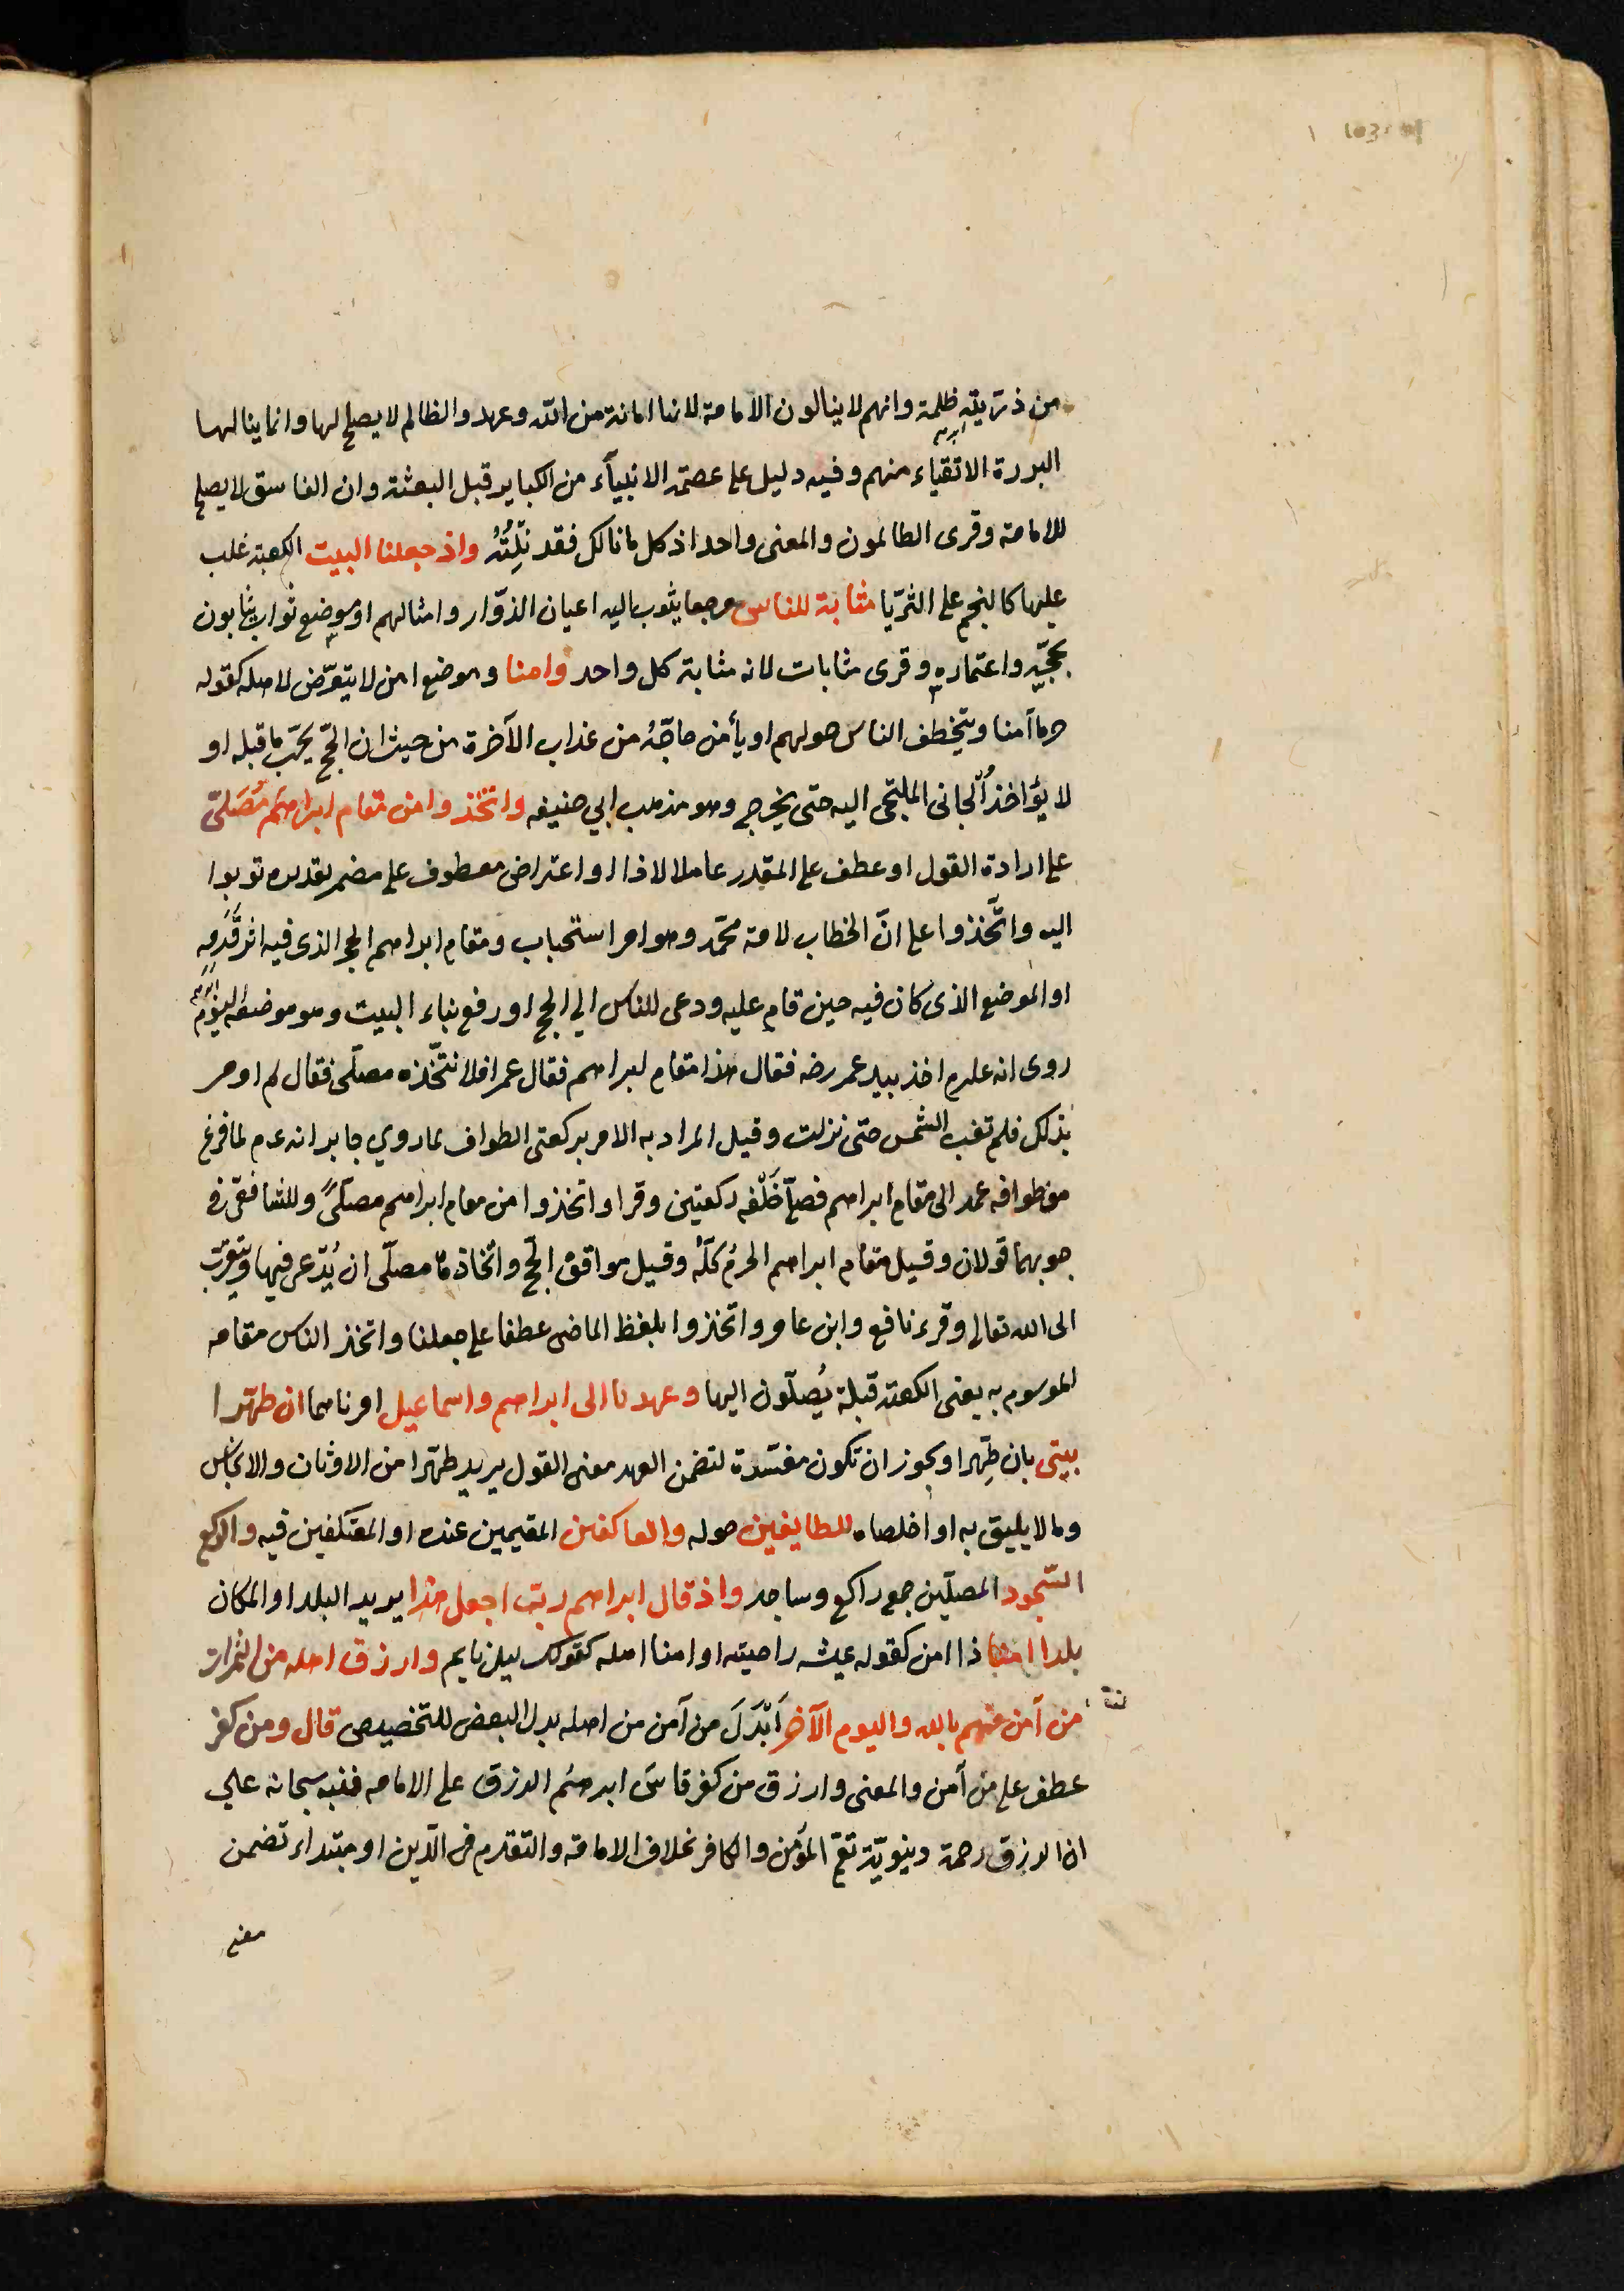 من ذريته ظلمة وانهم لا ينالون الامامة لانها امانة من الله وعهد والظالم لا يصلح لها وانما ينالها
البررة الاتقياء منهم وفيه دليل على عصمة الانبيآء من الكباير قبل البعثة وان الفاسق لا يصلح
للامامة وقرى الظالمون والمعنى واحد اذ كل ما نالك فقد نِلْتَهُ واذ جعلنا البيت الكعبة غلب
عليها كالنجم على الثريّا مثابة للناس مرجعا يثوب اليه اعيان الزوّار وامثالهم او موضع ثواب يثابون
بحجّه واعتماره وقرى مثابات لانه مثابة كل واحد وامنا وموضع امن لا يتعرّض لاهله كقوله
حرما آمنا ويتخطف الناس حولهم او يأمن حاجّهُ من عذاب الآخرة من حيث ان الحّج يجبّ ما قبله او
لا يؤاخذُ الجانى الملتجى اليه حتى يخرج وهو مذهب ابي حنيفه واتخذوا من مقام ابراهيم مُصَلىّ
على ارادة القول او عطف على المقدر عاملا لاذ او اعتراض معطوف على مضمر تقديره توبوا
اليه واتَّخذوا على انّ الخطاب لامة محمّد وهو امر استحباب ومقام ابراهيم الحجر الذى فيه اثر قَدَمِه
او الموضع الذى كان فيه حين قام عليه ودعى للناس الي الحج او رفع بناء البيت وهو موضعه اليوم
روى انه علىه اخذ بيد عمر رضه فقال هذا مقام ابراهيم فقال عمر افلا نتّخذه مصلّى فقال لم اومر
بذلك فلم تغب الشمس حتى نزلت وقيل المراد به الامر بركعتى الطواف لما روي جابر انه عم لما فرغ
من طوافه عمد الى مقام ابراهيم فصلّى خَلْفه ركعتين وقرا واتخذوا من مقام ابراهيم مصلّىً وللشافعى فى و
جوبهما قولان وقيل مقام ابراهيم الحرمُ كلّهُ وقيل مواقف الحّج واتخاذها مصلّى ان يُدّعى فيها ويتقرّب
الى الله تعالى وقرء نافع وابن عامر واتخذوا بلفظ الماضى عطفا على جعلنا واتخذ الناس مقامه
الموسوم به يعنى الكعبة قبلة يُصلّون اليها وعهدنا الى ابراهيم واسماعيل امرناهما ان طهّرا
بيتى بان طِّهرا ويجوز ان تكون مفسّرة لتضمن العهد معنى القول يريد طهّرا من الاوثان والانجاس
وما لا يليق به او اخلصاه للطايفين حوله والعاكفين المقيمين عنده او المعتكفين فيه والركع
السّجود المصلّين جمع راكع وساجد واذ قال ابراهيم ربّ اجعل هذا يريد البلد او المكان
بلدا امنا ذا امن كقوله عيشه راضيته او امنا اهله كقولك ليل نايم وارزق اهله من الثمرات
من آمن منهم بالله واليوم الآخر اَبْدَلَ من آمن من اهله بدل البعض للتخصيص قال ومن كفر
عطف على مَن آمن والمعنى وارزق من كفر قاسَ ابرهيُم الرزق على الامامه فنبه سبحانه علي
ان الرزق رحمة دنيويّة تعمّ المؤمن والكافر بخلاف الامامة والتقدم فى الدّين او مبتداء تضمن
معنى